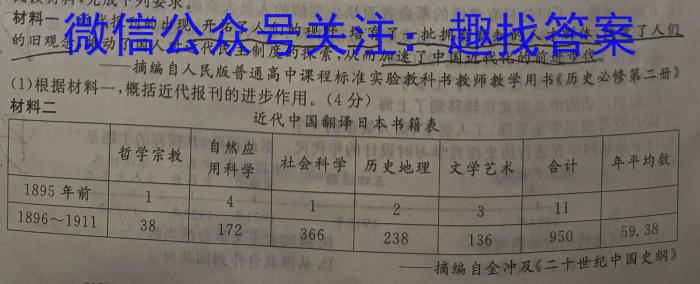 阅读材料,完成下列要求。
材料一 近代报刊的出现,开拓了人们的视野,培育了一批拥有 的人 体 了人们
的旧观念,推动了国人对近代民主制度的探索,从而加速了中国近代化的前进步伐。
微信公众号关注:趣找答案
——摘编自人民版普通高中课程标准实验教科书教师教学用书《历史必修第二册》
(1)根据材料一,概括近代报刊的进步作用。(4分)
材料二
近代中国翻译日本书籍表
哲学宗教 自然应用科学 社会科学 历史地理 文学艺术 合计 年平均数
1895年前 1 4 1 2 3 11
1896~1911 38 172 366 238 136 950 59.38
——摘编自金冲及《二十世纪中国史纲》